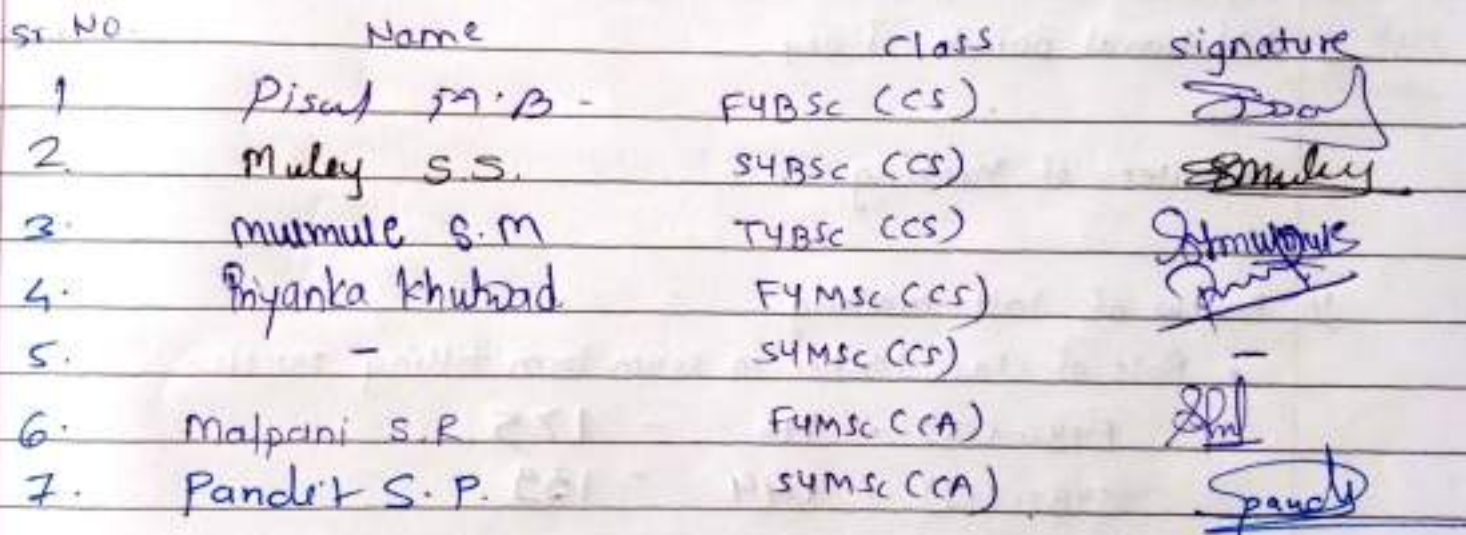 Sr. No. Name Class signature
1 Pisal M.B - FYBSc (CS).
2. Muley S.S. SYBSc (CS) SSmuley
3. mulmule S.M TYBSc (CS)
4. Priyanka Khutwad FYMSc (CS)
5. - SYMSc (CS) -
6. Malpani S.R. FYMSc (CA)
7. Pandit S.P. SYMSc (CA)